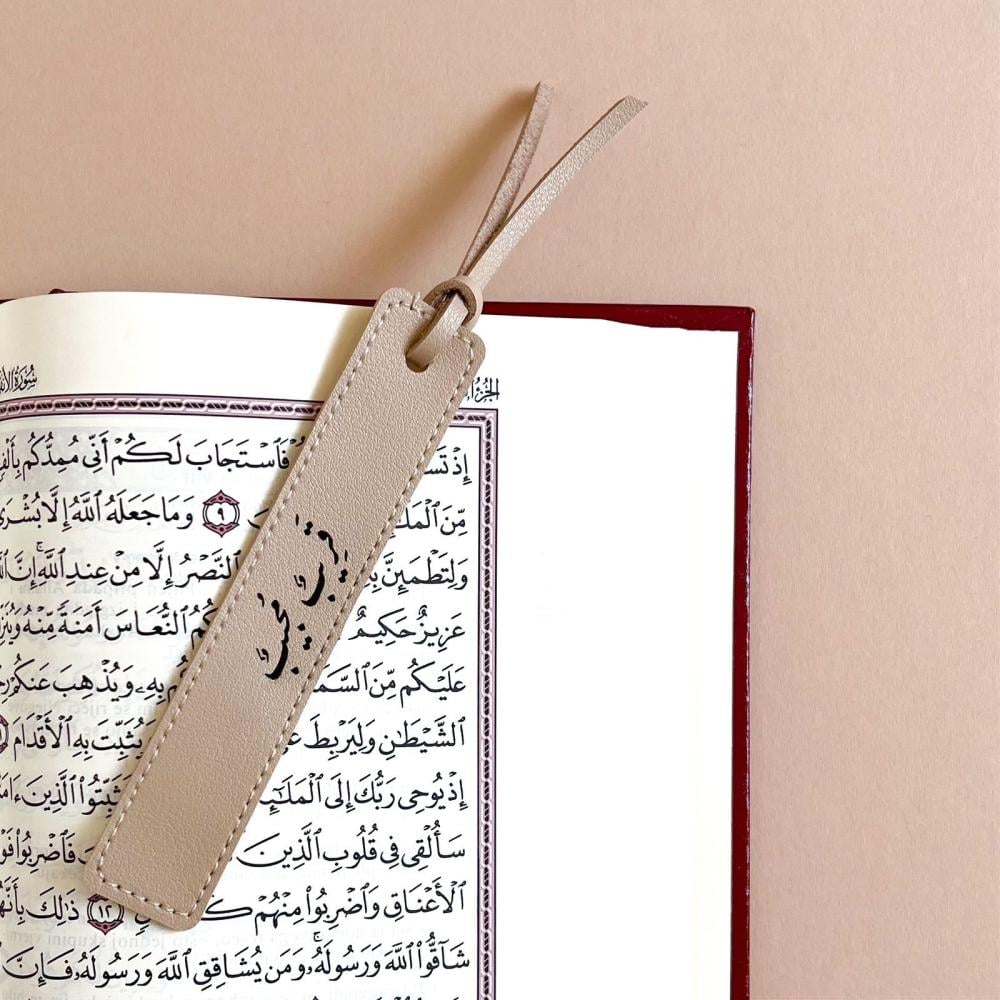 سُورَةُ الأنف
الجُزْءُ
إِذْ تَسْ فَٱسْتَجَابَ لَكُمْ أَنِّى مُمِدُّكُم بِأَلْفٍ
مِّنَ ٱلْمَلَ ٩ وَمَا جَعَلَهُ ٱللَّهُ إِلَّا بُشْرَىٰ
وَلِتَطْمَئِنَّ بِهِ ٱلنَّصْرُ إِلَّا مِنْ عِندِ ٱللَّهِ ۚ إِنَّ
عَزِيزٌ حَكِيمٌ كُمُ ٱلنُّعَاسَ أَمَنَةً مِّنْهُ وَيُنَزِّ
عَلَيْكُم مِّنَ ٱلسَّمَا م بِهِۦ وَيُذْهِبَ عَنكُمْ
ٱلشَّيْطَـٰنِ وَلِيَرْبِطَ عَ يُثَبِّتَ بِهِ ٱلْأَقْدَامَ
إِذْ يُوحِى رَبُّكَ إِلَى ٱلْمَلَـٰٓئِ ثَبِّتُوا۟ ٱلَّذِينَ ءَامَ
سَأُلْقِى فِى قُلُوبِ ٱلَّذِينَ فَٱضْرِبُوا۟ فَوْ
ٱلْأَعْنَاقِ وَٱضْرِبُوا۟ مِنْهُمْ كُ ١٢ ذَٰلِكَ بِأَنَّهُ
شَآقُّوا۟ ٱللَّهَ وَرَسُولَهُۥ ۚ وَمَن يُشَاقِقِ ٱللَّهَ وَرَسُولَهُۥ فَإِنَّ
قَرِيبٌ
مُجِيبٌ